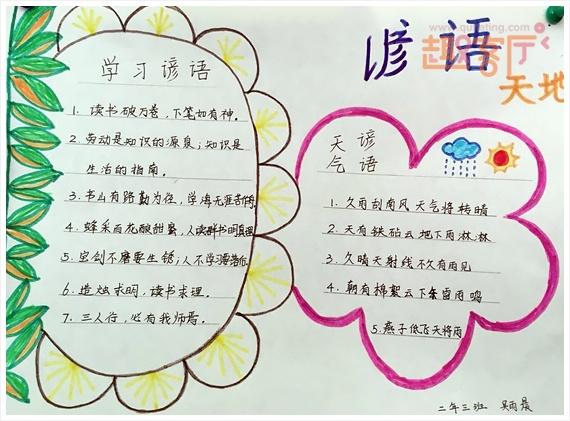 谚语
天地
学习谚语
1. 读书破万卷，下笔如有神。
2. 劳动是知识的源泉；知识是
生活的指南。
3. 书山有路勤为径，学海无涯苦作
4. 蜂采百花酿甜蜜，人读群书明真理
5. 宝剑不磨要生锈；人不学习要落后
6. 造烛求明，读书求理。
7. 三人行，必有我师焉。
天气
谚语
1. 久雨刮南风 天气将转晴
2. 天有铁砧云 地下雨淋淋
3. 久晴天射线 不久有雨见
4. 朝有棉絮云 下午雷雨鸣
5. 燕子低飞天将雨
二年三班 吴雨晨
趣客厅